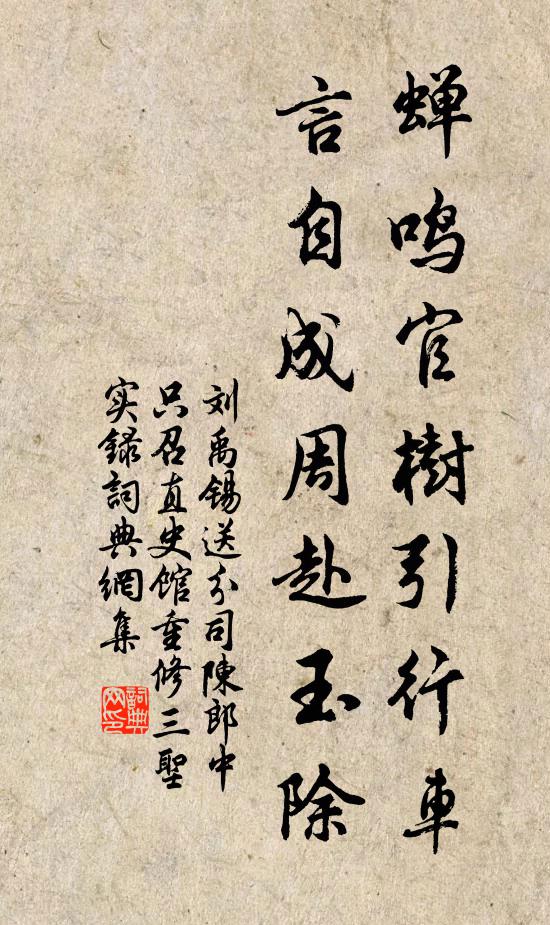 蝉鸣官樹引行車
言自成周赴玉除
刘禹锡送分司陳郎中
只召直史馆重修三聖
实録詞典網集
詞典网印